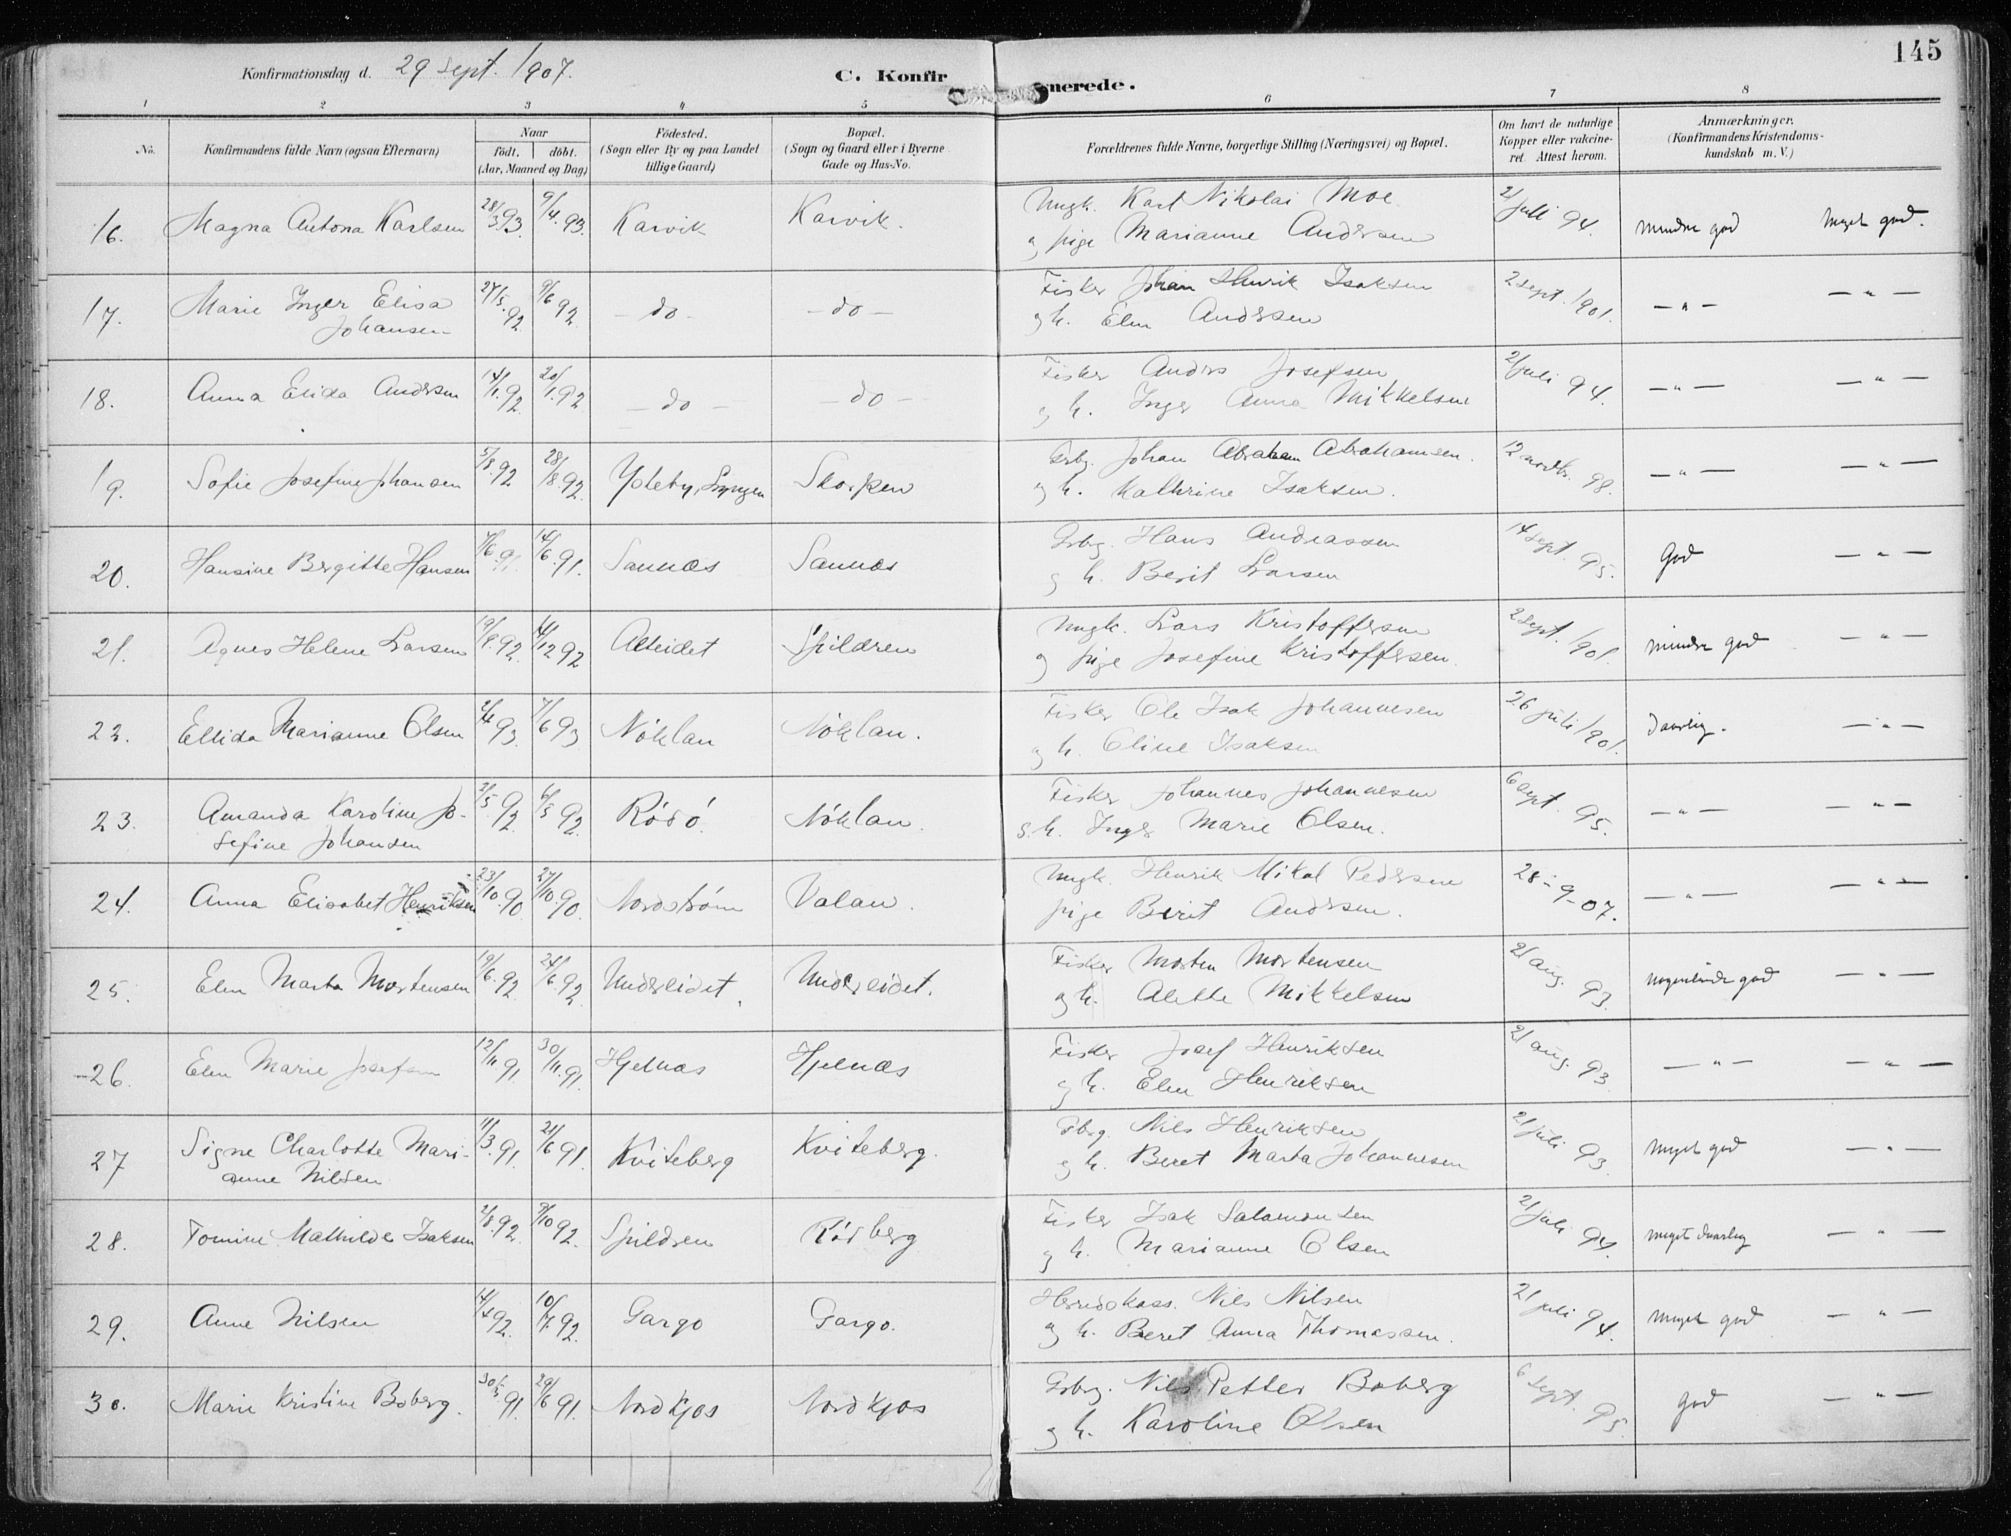 145
Konfirmationsdag d. 29 sept. 1907.
C. Konfirmerede.
1 2 3 4 5 6 7 8
No. Konfirmandens fulde Navn (ogsaa Efternavn) Naar født. døbt. (Aar, Maaned og Dag) Fødested. (Sogn eller By og paa Landet tillige Gaard) Bopæl. (Sogn og Gaard eller i Byerne Gade og Hus-No. Forældrenes fulde Navne, borgerlige Stilling (Næringsvei) og Bopæl. Om havt de naturlige Kopper eller vakcineret. Attest herom. Anmærkninger. (Konfirmandens Kristendomskundskab m. V.)
16. Magna Antona Karlsen 28/3 93. 9/4. 93. Karvik Karvik. Ungk. Karl Nikolai Moe
og pige Marianne Andersen 2/juli 94. mindre god Meget god.
17. Marie Inger Elisa
Johansen 27/5. 92 9/6 92. - do - - do - Fisker Johan Henrik Isaksen
og h. Elen Andersen 2 sept. 1901. - " - - " -
18. Anna Elida Andersen 14/1. 92. 20/1. 92 - do - - do - Fisker Anders Josefsen
og h. Inger Anna Mikkelsen 2/juli 94. - " - - " -
19. Sofie Josefine Johansen 5/8. 92 28/8. 92. Ytleby, Lyngen Skorpen Grbg. Johan Abraham Abrahamsen.
og h. Kathrine Isaksen. 12 novbr. 98. - " - - " -
20. Hansine Bergitte Hansen 7/6 91. 14/6. 91. Sannæs Sannæs Grbg. Hans Andreassen
og h. Berit Larsen 14 sept. 95. God - " -
21. Agnes Helene Larsen 19/8. 92. 11/12 92 Alteidet Spildren Ungk. Lars Kristoffersen
og pige Josefine Kristoffersen. 2 sept. 1901. mindre god - " -
22. Ellida Marianne Olsen 2/4 93. 7/6 93 Nöklan Nöklan. Fisker Ole Isak Johannesen
og h. Oline Isaksen 26 juli 1901. Daarlig. - " -
23. Amanda Karoline Jo-
sefine Johansen 2/5. 92. 6/5 92. Rödö. Nöklan. Fisker Johannes Johannesen
og h. Inger Marie Olsen. 6 sept. 95. - " - - " -
24. Anna Elisabet Henriksen 23/10. 90 27/10. 90. Nordström Valan. Ungk. Henrik Mikal Pedersen
pige Berit Andersen. 28-9-07. - " - - " -
25. Elen Marta Mortensen 19/6. 92. 26/6. 92. Undereidet. Undereidet. Fisker Morten Mortensen
og h. Alette Mikkelsen 2/aug. 93. nogenlunde god - " -
26. Elen Marie Josefsen 12/11 91. 30/11. 91. Hjelnæs Hjelnæs Fisker Josef Henriksen
og h. Elen Henriksen 2/aug. 93. - " - - " -
27 Signe Charlotte Mari-
anne Nilsen 11/3. 91. 21/6 91. Kviteberg Kviteberg. Grbg. Nils Henriksen
og h. Beret Marta Johannesen 2/juli 93. meget god - " -
28. Tomine Mathilde Isaksen 2/8. 92. 9/10 92. Spildren Rödberg Fisker Isak Salamonsen
og h. Marianne Olsen 2/juli 94. meget daarlig - " -
29. Anne Nilsen 14/4 92. 10/7. 92. Gargo Gargo. Herredskass. Nils Nilsen
og h. Beret Anna Thomassen. 2/juli 94. meget god - " -
30. Marie Kristine Boberg. 30/3 91. 29/6 91. Nordkjos Nordkjos Grbg. Nils Petter Boberg
og h. Karoline Olsen 6 sept. 95. God - " -